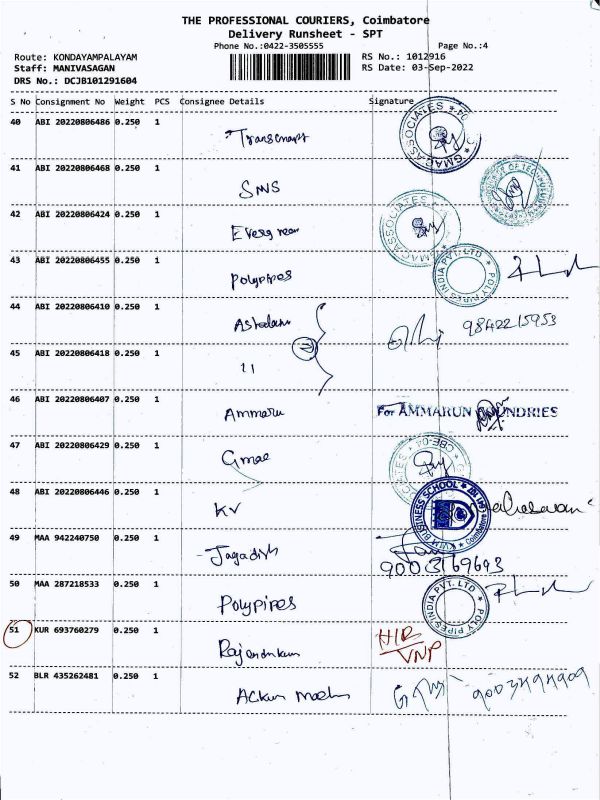 THE PROFESSIONAL COURIERS, Coimbatore
Delivery Runsheet - SPT
Phone No.:0422-3505555
Page No.:4
Route: KONDAYAMPALAYAM
RS No.: 1012916
Staff: MANIVASAGAN
RS Date: 03-Sep-2022
DRS No.: DCJB101291604
S No Consignment No Weight PCS Consignee Details Signature
40 ABI 20220806486 0.250 1
GMAC ASSOCIATES
41 ABI 20220806468 0.250 1 SNS
42 ABI 20220806424 0.250 1 Evergreen
GMAC ASSOCIATES
43 ABI 20220806455 0.250 1 Polypipes
POLY PIPES INDIA PVT. LTD
44 ABI 20220806410 0.250 1
9842215953
45 ABI 20220806418 0.250 1 11
46 ABI 20220806407 0.250 1 Ammarun For AMMARUN FOUNDRIES
47 ABI 20220806429 0.250 1 Gmac
48 ABI 20220806446 0.250 1 KV
BUSINESS SCHOOL
Coimbatore
49 MAA 942240750 0.250 1 Jagadish
9003169693
50 MAA 287218533 0.250 1 Polypipes
POLY PIPES INDIA PVT. LTD
51 KUR 693760279 0.250 1
VNP
52 BLR 435262481 0.250 1